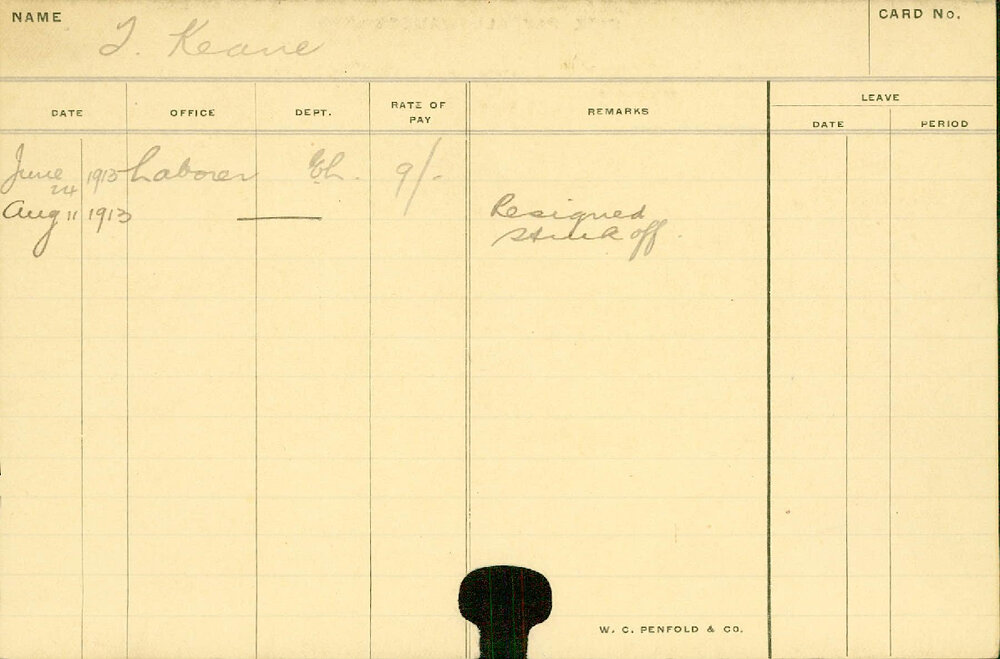 NAME
CARD No.
J. Keane
DATE
OFFICE
DEPT.
RATE OF PAY
REMARKS
LEAVE
DATE
PERIOD
June 24 1913 Laborer Eh. 9/-
Aug 11 1913 Resigned
Struck off
W. C. PENFOLD & CO.